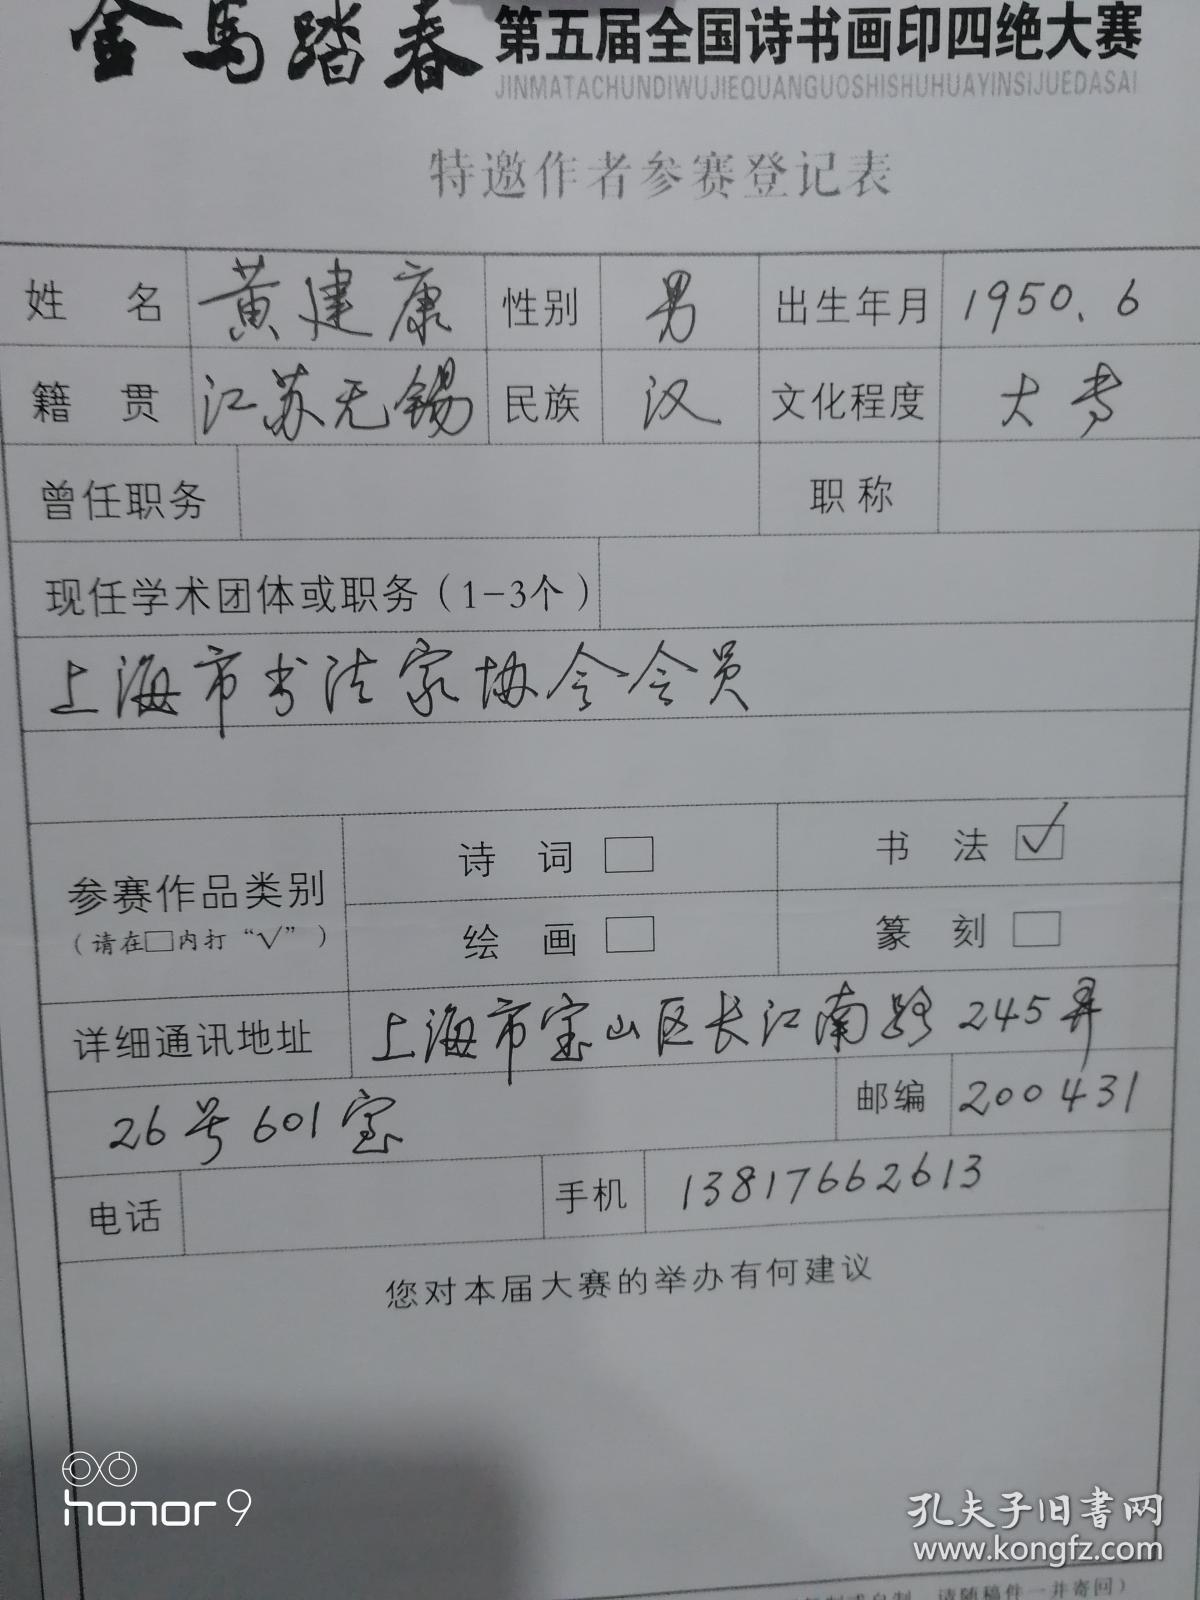 金马踏春 第五届全国诗书画印四绝大赛
JINMATACHUNDIWUJIEQUANGUOSHISHUHUAYINSIJUEDASAI
特邀作者参赛登记表
姓 名 黄建康 性别 男 出生年月 1950.6
籍 贯 江苏无锡 民族 汉 文化程度 大专
曾任职务 职称
现任学术团体或职务（1-3个）
上海市书法家协会会员
参赛作品类别 诗 词 □ 书 法 ☑
（请在□内打“√”） 绘 画 □ 篆 刻 □
详细通讯地址 上海市宝山区长江南路245弄
26号601室 邮编 200431
电话 手机 13817662613
您对本届大赛的举办有何建议
honor 9
孔夫子旧书网
www.kongfz.com
请随稿件一并寄回）